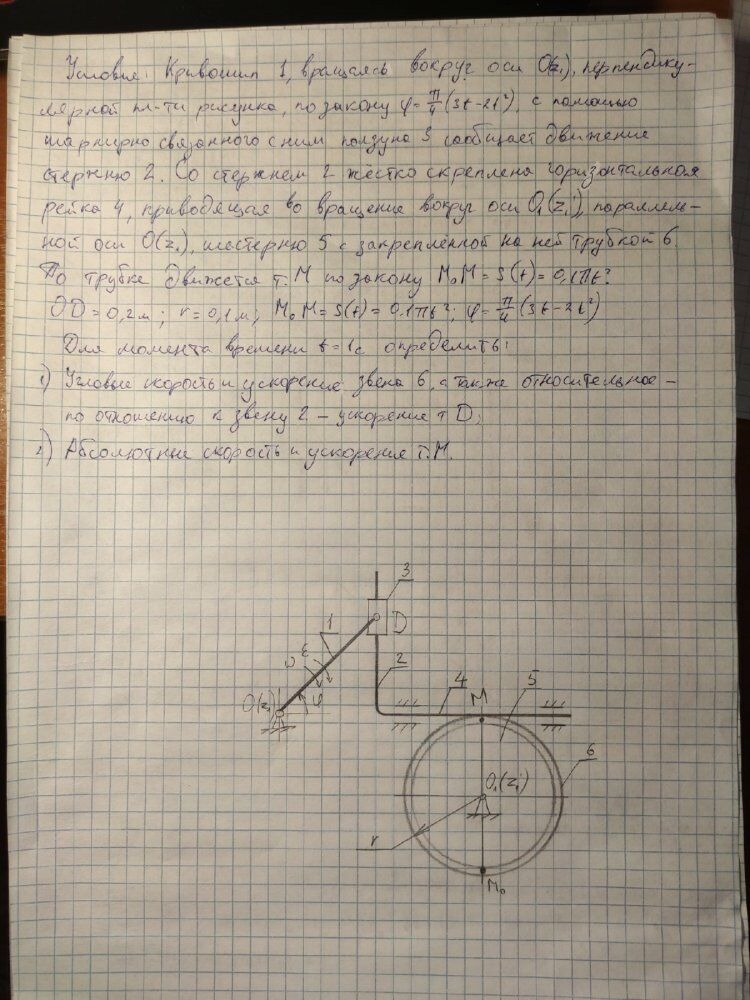 Условие: Кривошип 1, вращаясь вокруг оси O(z₁), перпендику-
лярной пл-ти рисунка, по закону φ=π/4(3t-2t²), с помощью
шарнирно связанного с ним ползуна 3 сообщает движение
стержню 2. Со стержнем 2 жёстко скреплена горизонтальная
рейка 4, приводящая во вращение вокруг оси O₁(z₁'), параллель-
ной оси O(z₁), шестерню 5 с закреплённой на ней трубкой 6.
По трубке движется т. M по закону M₀M = S(t) = 0,1πt².
OD = 0,2м; r = 0,1м; M₀M = S(t) = 0,1πt²; φ = π/4(3t-2t²)
Для момента времени t = 1с определить:
1) Угловые скорость и ускорение звена 6, а также относительное -
по отношению к звену 2 - ускорение т D;
2) Абсолютные скорость и ускорение т. M.
3
D
1
ω
ε
2
φ
O(z₁)
4
M
5
6
O₁(z₁')
r
M₀